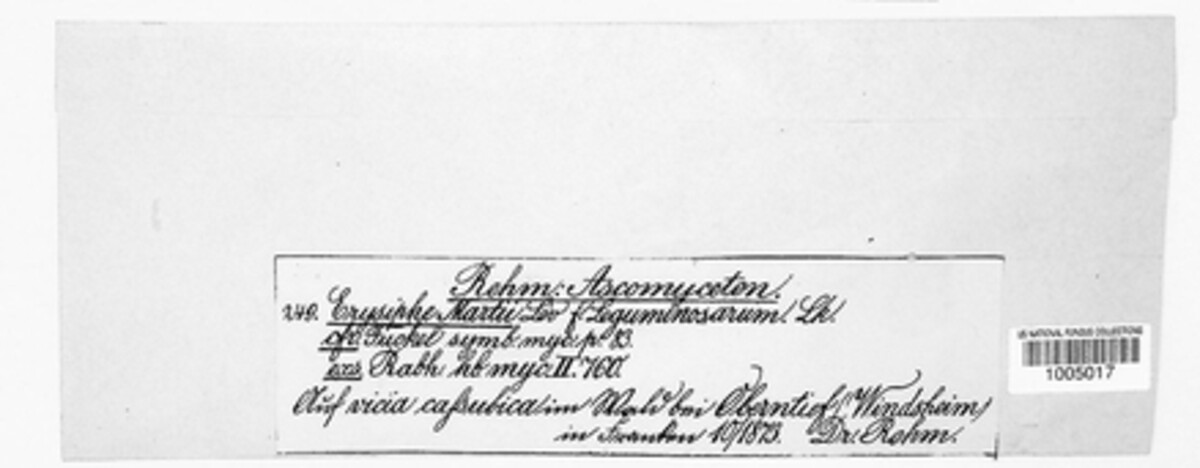 Rehm: Ascomyceten.
249. Erysiphe Martii Lév f. Leguminosarum. Lk.
cfr. Fuckel symb. myc. p. 83.
exs. Rabh hb. myc. II. 760.
Auf vicia caßubica im Wald bei Oberntief (Windsheim)
in Franken 10/1873. Dr. Rehm.
US NATIONAL FUNGUS COLLECTIONS
1005017